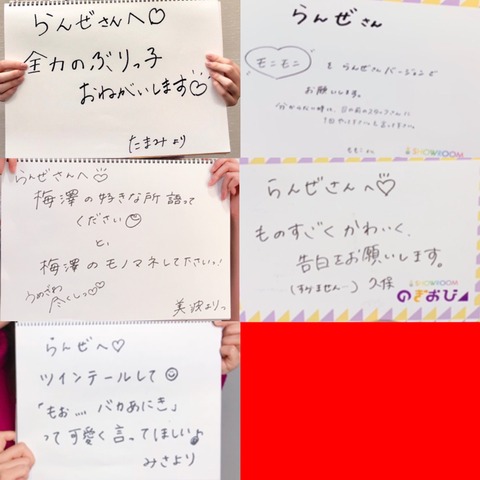 らんぜさんへ♡
全力のぶりっ子
おねがいします
たまみより
らんぜさん
モニモニ を らんぜさんバージョンで
お願いします。
SHOWROOM
らんぜさんへ
梅澤の好きな所語って
ください
と、
梅澤のモノマネしてださいっ!
うめざわ
尽くしっ♡
美波よりっ
らんぜさんへ♡
ものすごくかわいく、
告白をお願いします。
(すみません…) 久保
SHOWROOM
のぎおび
らんぜへ♡
ツインテールして
「もぉ.... バカあにき」
って可愛く言ってほしい♪
みさより